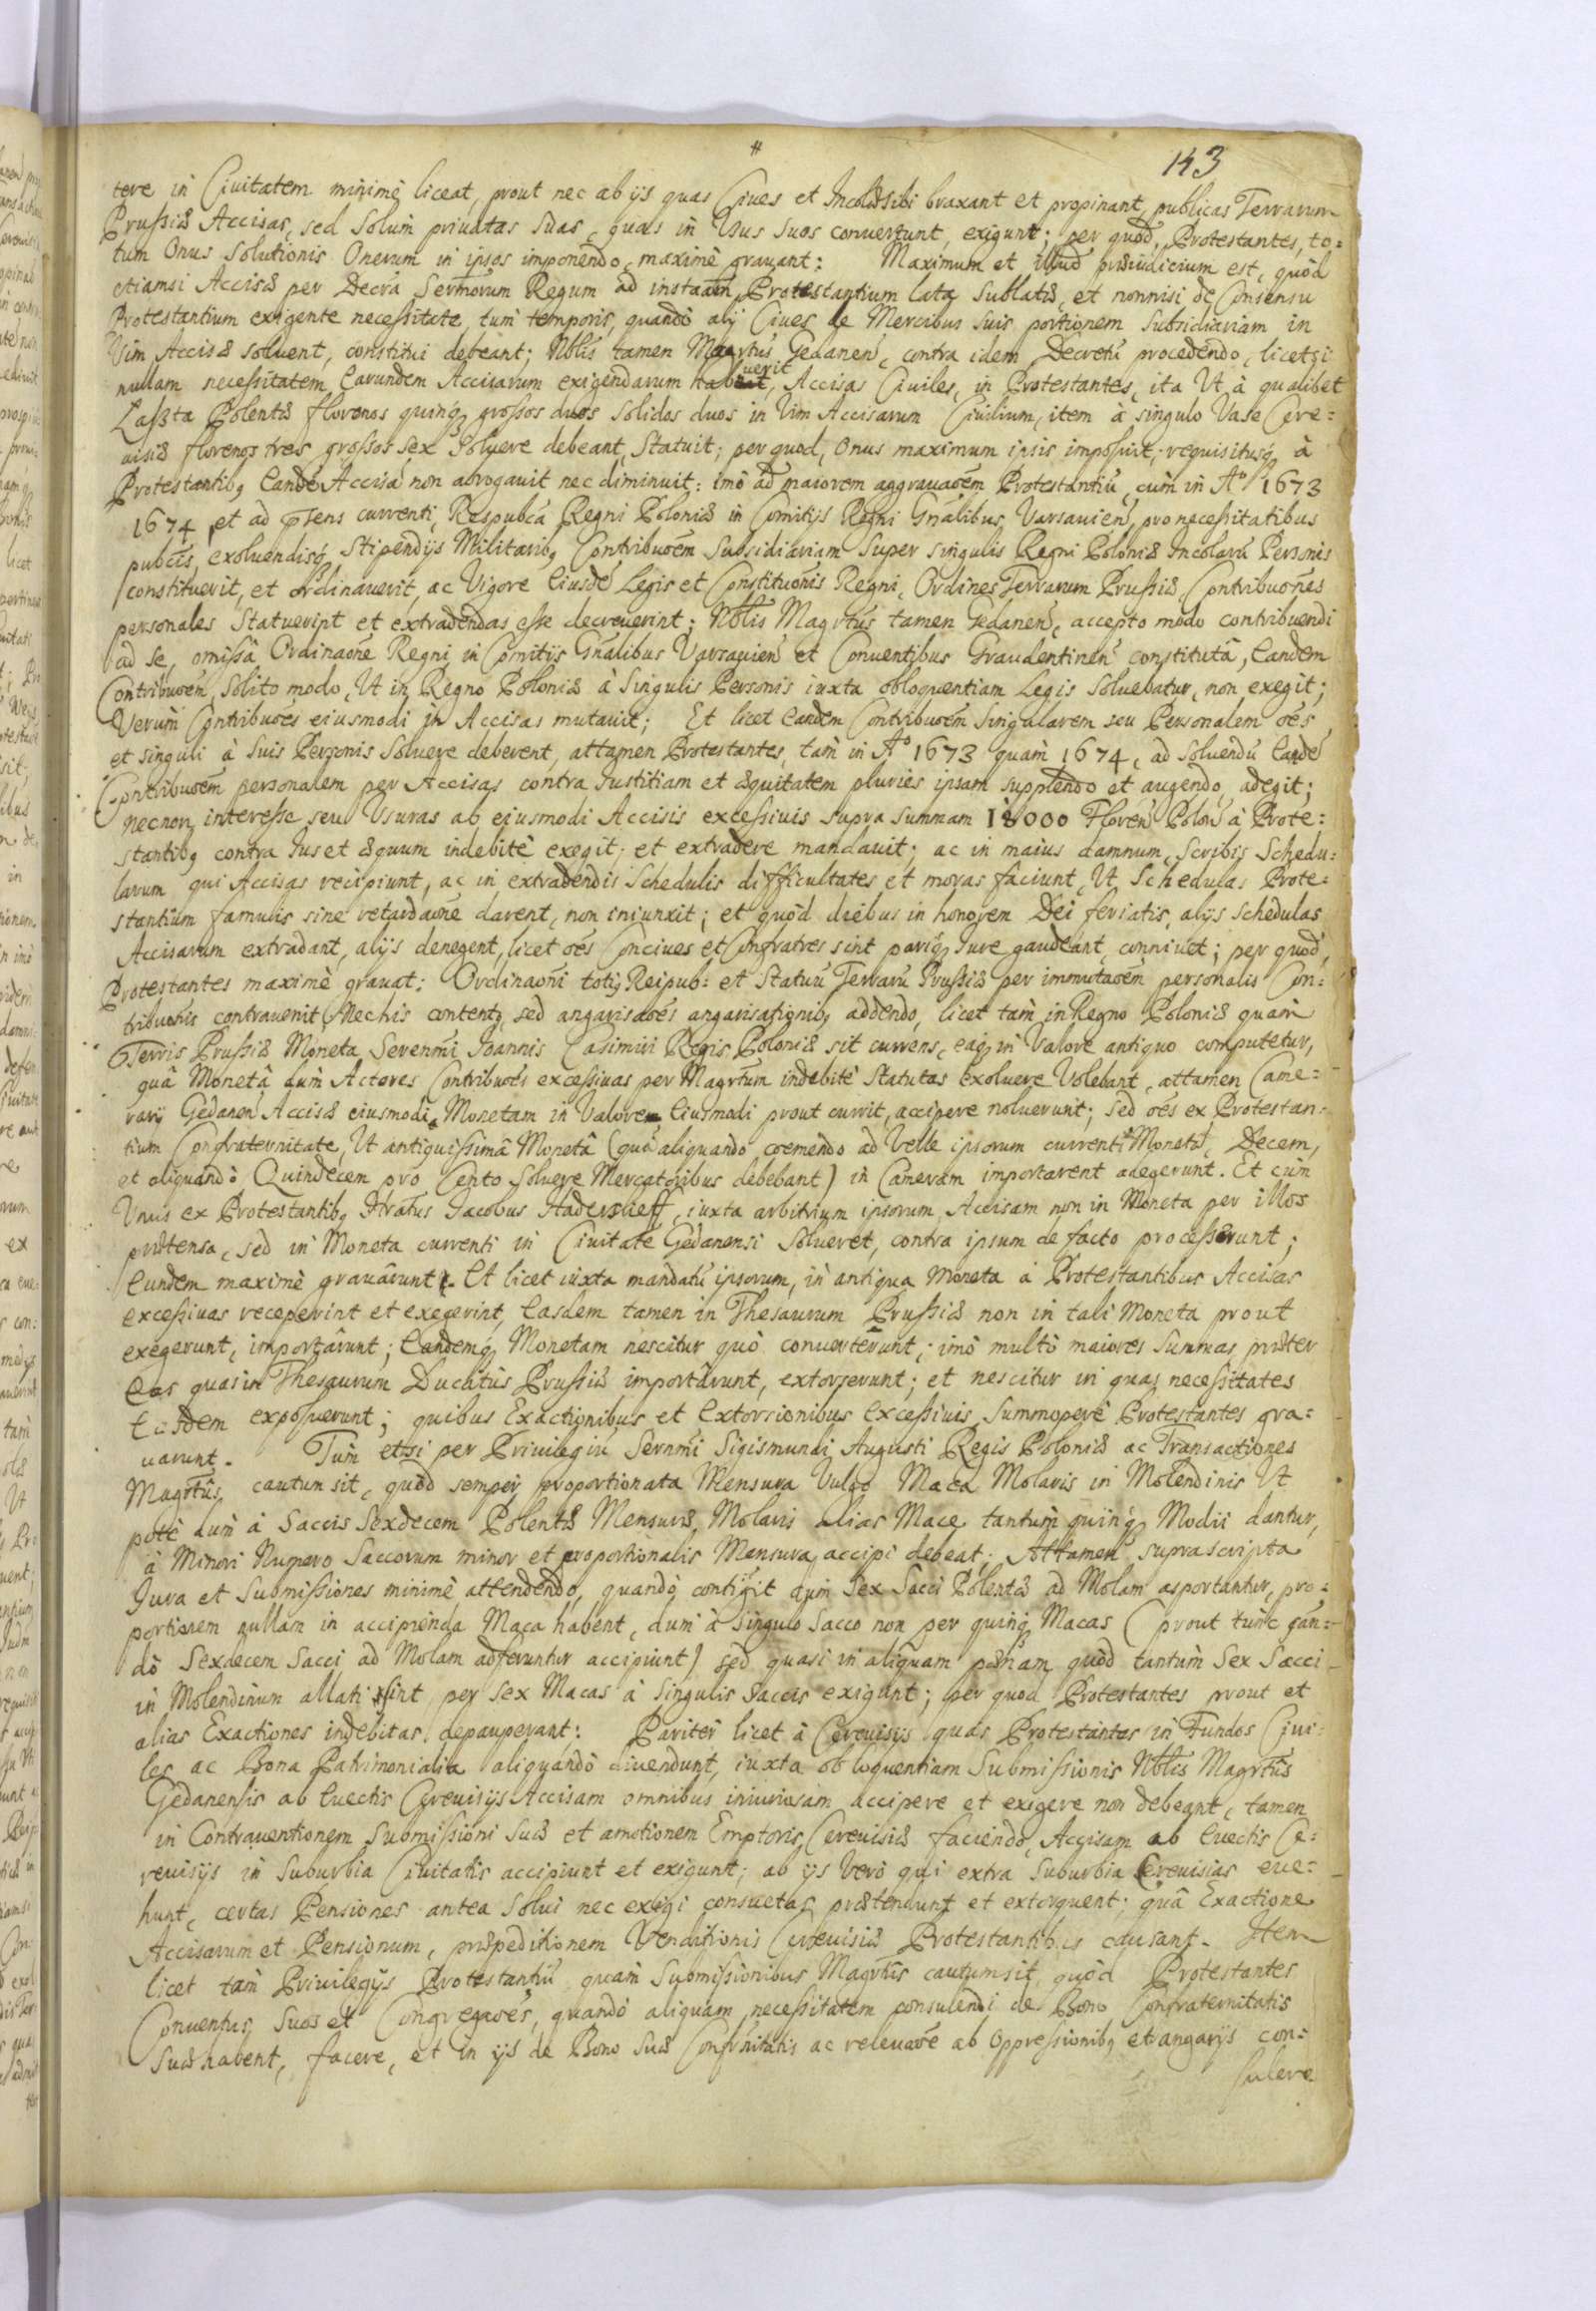 #
143
tere in Ciuitatem minimè liceat, prout nec ab ijs quas Ciues et Incolæ sibi braxant et propinant, publicas Terrarum
Prussiæ Accisas, sed solum priuatas suas, quas in Usus suos conuertunt, exigunt; per quod, Protestantes, to=
tum Onus solutionis Onerum in ipsos imponendo, maximè grauant: Maximum et illud præiudicium est, quòd
etiamsi Accisæ per Decra Sermorum Regum ad instaãm Protestantium lata sublatæ, et nonnisi de Consensu
Protestantium exigente necessitate, tum temporis, quando alij Ciues de Mercibus suis portionem subsidiariam in
Vim Accisæ soluent, constitui debeant; Nblis tamen Magrtus Gedanen, contra idem Decretũ procedendo, licet si
nullam necessitatem Earundem Accisarum exigendarum habuerit, Accisas Ciuiles, in Protestantes, ita Ut à qualibet
Laßta Polentæ florenos quinq grossos duos solidos duos in Vim Accisarum Ciuilium, item à singulo Vase Cere=
uisiæ florenos tres grossos sex soluere debeant, statuit; per quod, Onus maximum ipsis imposuit, requisitusq à
Protestantibq Eandẽ Accisã non abrogauit nec diminuit: imò ad maiorem aggrauaõẽm Protestantiũ, cùm in Aº 1673
1674 et ad pñsens currenti, Respubca Regni Poloniæ in Comitijs Regni Gnãlibus, Varsauien, pro necessitatibus
pubcis, exoluendisq Stipendijs Militaribq Contribuõẽm subsidiariam super singulis Regni Poloniæ Incolarũ Personis
constituerit, et ordinauerit, ac Vigore Eiusdẽ Legis et Constituõnis Regni, Ordines Terrarum Prussiæ, Contribuõnes
personales statuerint et extradendas esse decreuerint; Nblis Magrtus tamen Gedanen, accepto modo contribuendi
ad se, omissâ Ordinaõne Regni in Comitijs Gnãlibus Varsauien et Conuentibus Graudentinen constitutâ, Eandem
Contribuõẽm, solito modo, Ut in Regno Poloniæ à singulis Personis iuxta obloquentiam Legis soluebatur, non exegit;
Verùm Contribuões eiusmodi in Accisas mutauit; Et licet Eandem Contribuõẽm singularem seu Personalem oẽs
et singuli à suis Personis soluere deberent, attamen Protestantes, tam in Aº 1673 quam 1674, ad soluendũ Eandẽ
Contribuõẽm personalem per Accisas contra Iustitiam et æquitatem pluries ipsam supplendo et augendo, adegit;
necnon interesse seu Usuras ab eiusmodi Accisis excessiuis supra summam 18000 Floren Polon à Prote=
stantibq contra Ius et æquum indebitè exegit, et extradere mandauit; ac in maius damnum, scribis Schedu=
larum qui Accisas recipiunt, ac in extradendis Schedulis difficultates et moras faciunt, Ut Schedulas Prote=
stantium famulis sine retardaõne darent, non iniunxit; et quòd diebus in honorem Dei feriatis, alijs schedulas
Accisarum extradant, alijs denegent, licet oẽs Conciues et Confratres sint pariq Iure gaudeant, conniuet; per quod,
Protestantes maximè grauat: Ordinaõni totiq Reipub: et Statuũ Terrarũ Prussiæ per immutaõẽm personalis Con=
tribuõnis contrauenit, Nec his contentq, sed angarisaões angarisationibq addendo, licet tàm in Regno Poloniæ quàm
Terris Prussiæ Moneta Serenmi Ioannis Casimiri Regis Poloniæ sit currens, eaq in Valore antiquo computetur,
quâ Monetâ dum Actores Contribuões excessiuas per Magrtum indebitè statutas exoluere Volebant, attamen Came=
rarij Gedanen Accisæ eiusmodi Monetam in Valore Eiusmodi prout currit, accipere noluerunt; sed oẽs ex Protestan=
tium Confraternitate, Ut antiquissimâ Monetâ (quã aliquando coemendo ad Velle ipsorum currenti Moneta, Decem,
et aliquandò Quindecem pro Cento soluere Mercatoribus debebant) in Cameram importarent adegerunt. Et cùm
Unus ex Protestantibq Hratus Iacobus Hadersleff, iuxta arbitrium ipsorum Accisam non in Moneta per illos
prætensa, sed in Moneta currenti in Ciuitate Gedanensi solueret, contra ipsum de facto processerunt;
Eundem maximè grauârunt. Et licet iuxta mandatũ ipsorum, in antiqua Moneta à Protestantibus Accisas
excessiuas receperint et exegerint, Easdem tamen in Thesaurum Prussiæ non in tali Moneta prout
exegerunt, importârunt; Eandemq Monetam nescitur quò conuerterunt; imò multò maiores summas præter
Eas quas in Thesaurum Ducatûs Prussiæ importârunt, extorserunt; et nescitur in quas necessitates
Easdem exposuerunt; quibus Exactionibus et Extorsionibus Excessiuis, summoperè Protestantes gra=
uarunt. Tum etsi per Priuilegiũ Sernmi Sigismundi Augusti Regis Poloniæ ac Transactiones
Magrtus, cautum sit, quòd semper proportionata Mensura Vulgo Maca Molaris in Molendinis Ut
potè dum à Saccis Sexdecem Polentæ Mensuræ, Molaris alias Mace tantùm quinq Modii dantur,
à Minori Numero Saccorum minor et proportionalis Mensura accipi debeat; Attamen suprascripta
Iura et Submissiones minimè attendendo, quandò contigit dum Sex Sacci Polentæ ad Molam asportantur, pro=
portionem nullam in accipienda Maca habent, dum à singulo Sacco non per quinq Macas (prout tunc qan=
dò Sexdecem Sacci ad Molam adferuntur accipiunt) sed quasi in aliquam pœnam quòd tantùm Sex Sacci
in Molendinum allati sint, per Sex Macas à singulis saccis exigunt; per quod Protestantes prout et
alias Exactiones indebitas, depauperant: Pariter licet à Cereuisijs quas Protestantes in Fundos Ciui=
les ac Bona Patrimonialia aliquandò diuendunt, iuxta obloquentiam Submissionis Nblis Magrtus
Gedanensis ab Euectis Cereuisijs Accisam omnibus iniuriosam accipere et exigere non debeant, tamen
in Contrauentionem Submissioni suæ et amotionem Emptoris Cereuisiæ faciendo, Accisam ab Euectis Ce=
reuisijs in Suburbia Ciuitatis accipiunt et exigunt; ab ijs Verò qui extra Suburbia Cereuisias eue=
hunt, certas Pensiones antea solui nec exigi consuetas prætendunt et extorquent; quâ Exactione
Accisarum et Pensionum, præpeditionem Venditionis Cereuisiæ Protestantibus causant. Item
licet tam Priuilegijs Protestantiũ quàm Submissionibus Magrtus cautum sit, quòd Protestantes
Conuentus suos et Congregaões, quandò aliquam necessitatem consulendi de Bono Confraternitatis
suæ habent, facere, et in ijs de Bono suæ Confrnitatis ac releuaõe ab Oppressionibq et angarijs con=
sulere